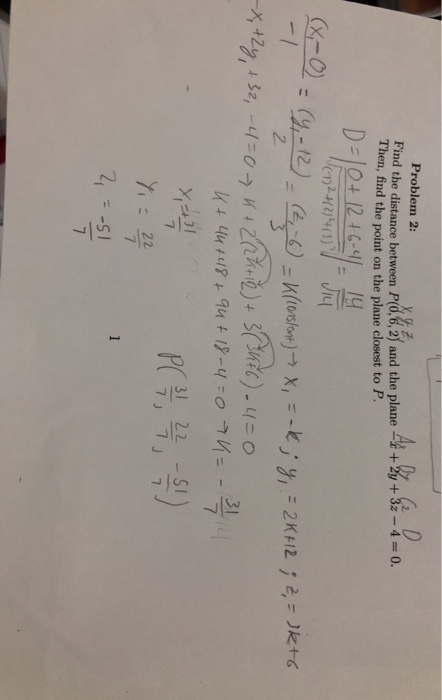 Problem 2:
Find the distance between P(0, 6, 2) and the plane -x + 2y + 3z - 4 = 0.
Then, find the point on the plane closest to P.
x y z
Ax By Cz D
D = |0 + 12 + 6 - 4| / √((-1)² + (2)² + (3)²) = 14/√14
(x₁-0)/-1 = (y₁-12)/2 = (z₁-6)/3 = K(constant) → x₁ = -k ; y₁ = 2k+12 ; z₁ = 3k+6
-x₁ + 2y₁ + 3z₁ - 4 = 0 → k + 2(2k+12) + 3(3k+6) - 4 = 0
k + 4k + 48 + 9k + 18 - 4 = 0 → k = - 31/7
x₁ = +31/7
y₁ = 22/7
z₁ = -51/7
P(31/7, 22/7, -51/7)
1